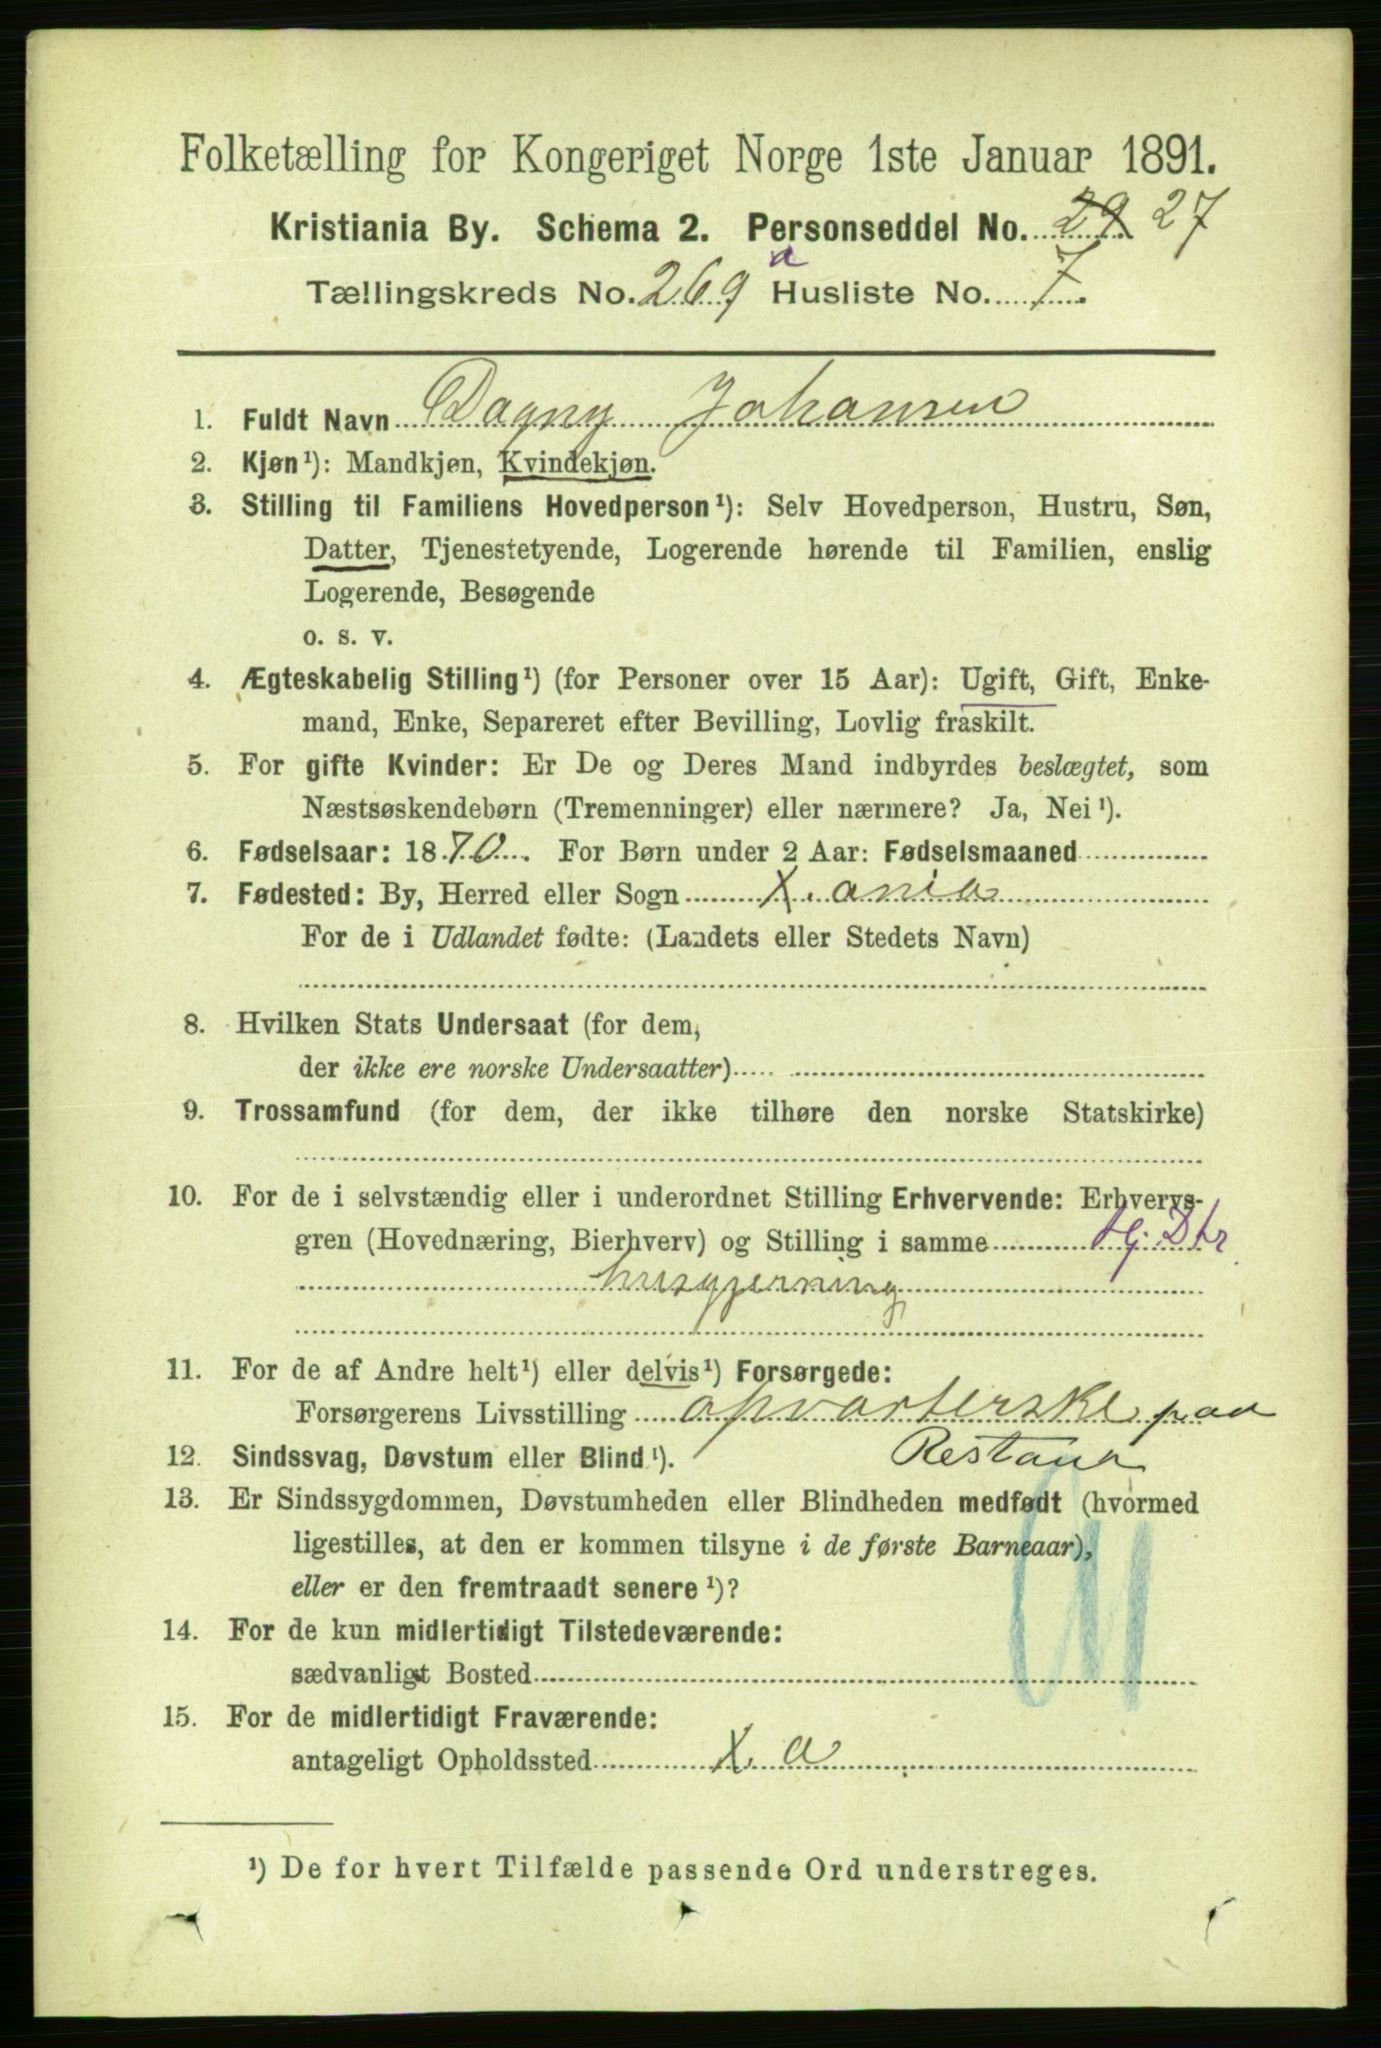 Folketælling for Kongeriget Norge 1ste Januar 1891.
Kristiania By. Schema 2. Personseddel No. 29 27
Tællingskreds No. 269 a Husliste No. 7.
1. Fuldt Navn Dagny Johansen
2. Kjøn¹): Mandkjøn, Kvindekjøn.
3. Stilling til Familiens Hovedperson¹): Selv Hovedperson, Hustru, Søn,
Datter, Tjenestetyende, Logerende hørende til Familien, enslig
Logerende, Besøgende
o. s. v.
4. Ægteskabelig Stilling¹) (for Personer over 15 Aar): Ugift, Gift, Enke-
mand, Enke, Separeret efter Bevilling, Lovlig fraskilt.
5. For gifte Kvinder: Er De og Deres Mand indbyrdes beslægtet, som
Næstsøskendebørn (Tremenninger) eller nærmere? Ja, Nei¹).
6. Fødselsaar: 1870. For Børn under 2 Aar: Fødselsmaaned
7. Fødested: By, Herred eller Sogn X.ania
For de i Udlandet fødte: (Landets eller Stedets Navn)
8. Hvilken Stats Undersaat (for dem,
der ikke ere norske Undersaatter)
9. Trossamfund (for dem, der ikke tilhøre den norske Statskirke)
10. For de i selvstændig eller i underordnet Stilling Erhvervende: Erhvervs-
gren (Hovednæring, Bierhverv) og Stilling i samme Hj. Dtr.
husgjerning
11. For de af Andre helt¹) eller delvis¹) Forsørgede:
Forsørgerens Livsstilling opvarterske paa
12. Sindssvag, Døvstum eller Blind¹). Restaur
13. Er Sindssygdommen, Døvstumheden eller Blindheden medfødt (hvormed
ligestilles, at den er kommen tilsyne i de første Barneaar),
eller er den fremtraadt senere¹)?
14. For de kun midlertidigt Tilstedeværende:
sædvanligt Bosted
15. For de midlertidigt Fraværende:
antageligt Opholdssted X. a
¹) De for hvert Tilfælde passende Ord understreges.